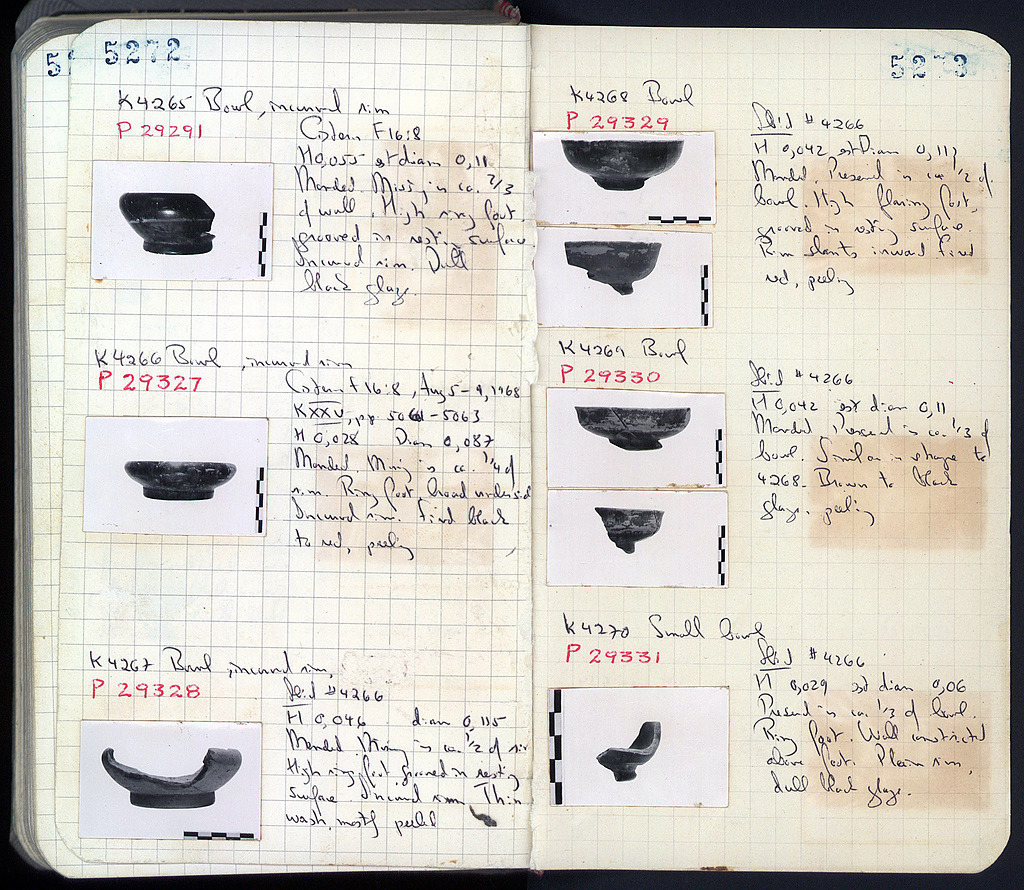 5272
K4265 Bowl, incurved rim
P 29291
Cistern F16:8
H 0,055 est diam 0,11
Mended. Missing ca. 2/3
of wall. High ring foot,
grooved in resting surface
Incurved rim. Dull
black glaze.
K4266 Bowl, incurved rim
P 29327
Cistern F16:8, Aug 5-9, 1968
KXXV, pp. 5061-5063
H 0,028 Diam 0,087
Mended. Missing is ca. 1/4 of
rim. Ring foot, broad underside
Incurved rim. Fired black
to red, peeling
K4267 Bowl, incurved rim,
P 29328
Ibid #4266
H 0,046 diam 0,115
Mended. Missing is ca. 1/2 of rim
High ring foot grooved in resting
surface Incurved rim Thin
wash, mostly peeled
5273
K4268 Bowl
P 29329
Ibid #4266
H 0,042 est Diam 0,11
Mended. Present is ca 1/2 of
bowl. High flaring foot,
grooved in resting surface.
Rim slants inward Fired
red, peeling
K4269 Bowl
P 29330
Ibid #4266
H 0,042 est diam 0,11
Mended Present is ca. 1/3 of
bowl. Similar in shape to
4268. Brown to black
glaze, peeling
K4270 Small bowl
P 29331
Ibid #4266
H 0,029 est diam 0,06
Present is ca. 1/3 of bowl.
Ring foot. Wall constricted
above foot. Plain rim,
dull black glaze.